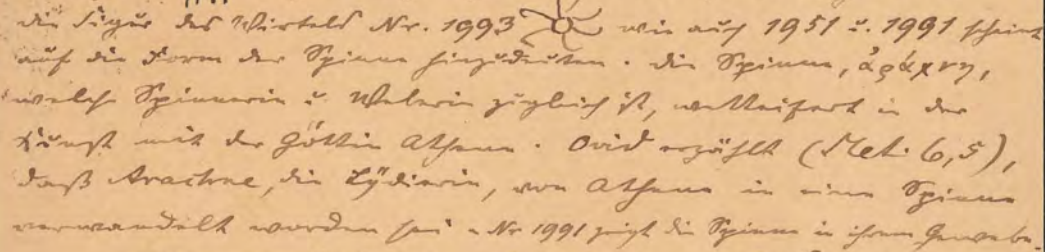 die Figur des Wirtels Nr. 1993 wie auch 1951 u. 1991 scheint
auf die Form der Spinne hinzudeuten. Die Spinne, ἀράχνη,
welche Spinnerin u. Weberin zugleich ist, wetteifert in der
Kunst mit der Göttin Athene. Ovid erzählt (Met. 6,5),
daß Arachne, die Lydierin, von Athene in eine Spinne
verwandelt worden sei. Nr 1991 zeigt die Spinne in ihrem Gewebe.